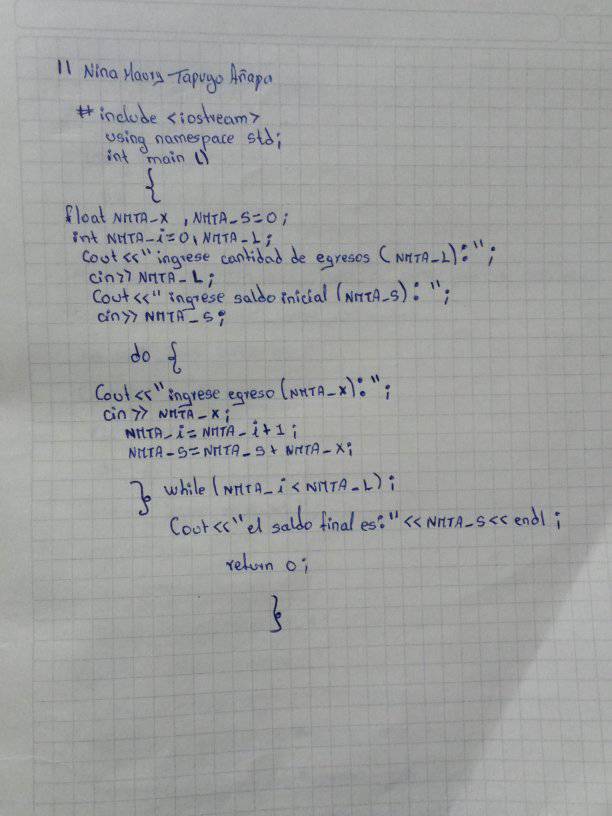 11 Nina Maory Tapuyo Añapa
# include <iostream>
using namespace std;
int main ()
{
float NMTA_X , NMTA_S=0;
int NMTA_i=0, NMTA_L;
Cout<<" ingrese cantidad de egresos (NMTA_L):";
cin>> NMTA_L;
Cout<<" ingrese saldo inicial (NMTA_S): ";
cin>> NMTA_S;
do {
Cout<<"ingrese egreso (NMTA_X):";
cin>> NMTA_X;
NMTA_i=NMTA_i+1;
NMTA_S=NMTA_S+ NMTA_X;
} while (NMTA_i<NMTA_L);
Cout<<"el saldo final es:"<<NMTA_S<<endl;
return 0;
}